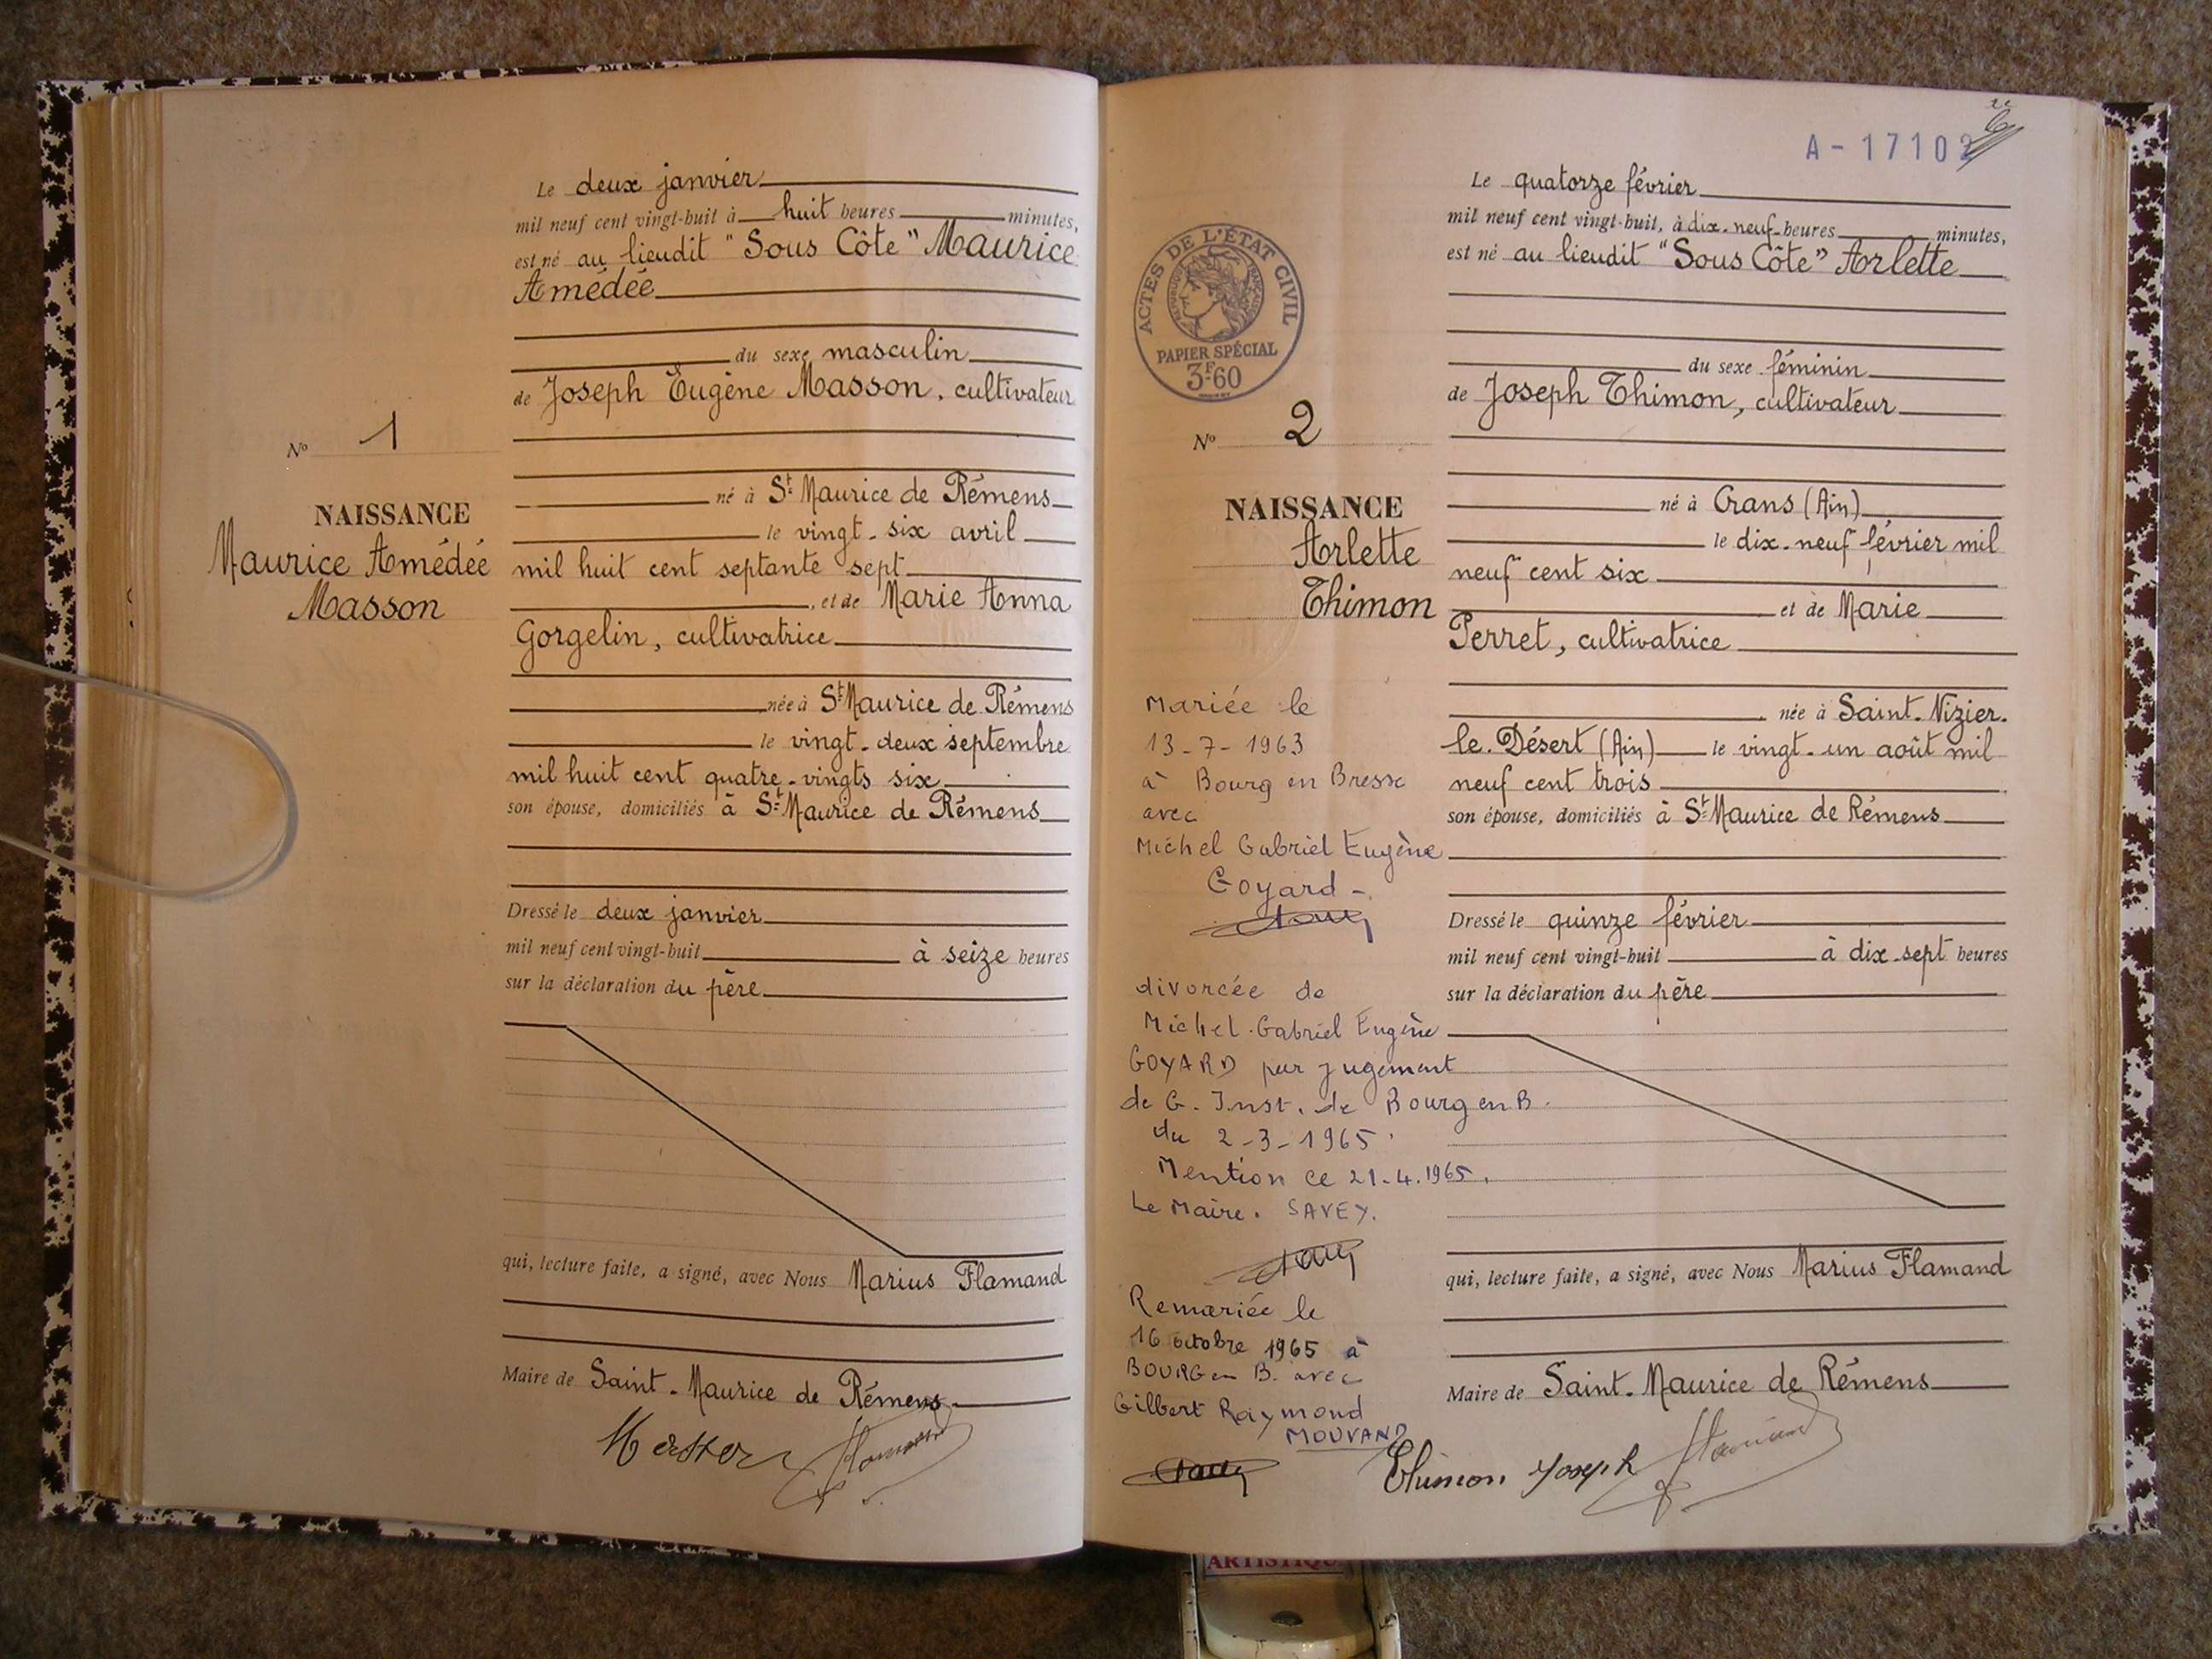 Le deux janvier
mil neuf cent vingt-huit à huit heures minutes,
est né au lieudit "Sous Côte" Maurice
Amédée
du sexe masculin
de Joseph Eugène Masson, cultivateur
N° 1
né à St Maurice de Rémens
NAISSANCE
le vingt-six avril
Maurice Amédée
mil huit cent septante sept
Masson
, et de Marie Anna
Gorgelin, cultivatrice
née à St Maurice de Rémens
le vingt-deux septembre
mil huit cent quatre-vingts six
son épouse, domiciliés à St Maurice de Rémens
Dressé le deux janvier
mil neuf cent vingt-huit à seize heures
sur la déclaration du père
qui, lecture faite, a signé, avec Nous Marius Flamand
Maire de Saint-Maurice de Rémens
A-17102
Le quatorze février
mil neuf cent vingt-huit, à dix-neuf heures minutes,
est né au lieudit "Sous Côte" Arlette
ACTES DE L'ÉTAT CIVIL
RÉPUBLIQUE FRANÇAISE
PAPIER SPÉCIAL
3F60
du sexe féminin
de Joseph Thimon, cultivateur
N° 2
né à Crans (Ain)
NAISSANCE
le dix-neuf février mil
Arlette
neuf cent six
Thimon
et de Marie
Perret, cultivatrice
née à Saint-Nizier-
le-Désert (Ain) le vingt-un août mil
neuf cent trois
son épouse, domiciliés à St Maurice de Rémens
Dressé le quinze février
mil neuf cent vingt-huit à dix-sept heures
sur la déclaration du père
qui, lecture faite, a signé, avec Nous Marius Flamand
Maire de Saint-Maurice de Rémens
Thimon Joseph
Mariée le
13-7-1963
à Bourg en Bresse
avec
Michel Gabriel Eugène
Goyard-
divorcée de
Michel-Gabriel Eugène
GOYARD par jugement
de G. Inst. de Bourg en B.
du 2-3-1965.
Mention ce 21.4.1965.
Le Maire. SAVEY.
Remariée le
16 octobre 1965 à
BOURG en B. avec
Gilbert Raymond
MOUVAND
ARTISTIQUE